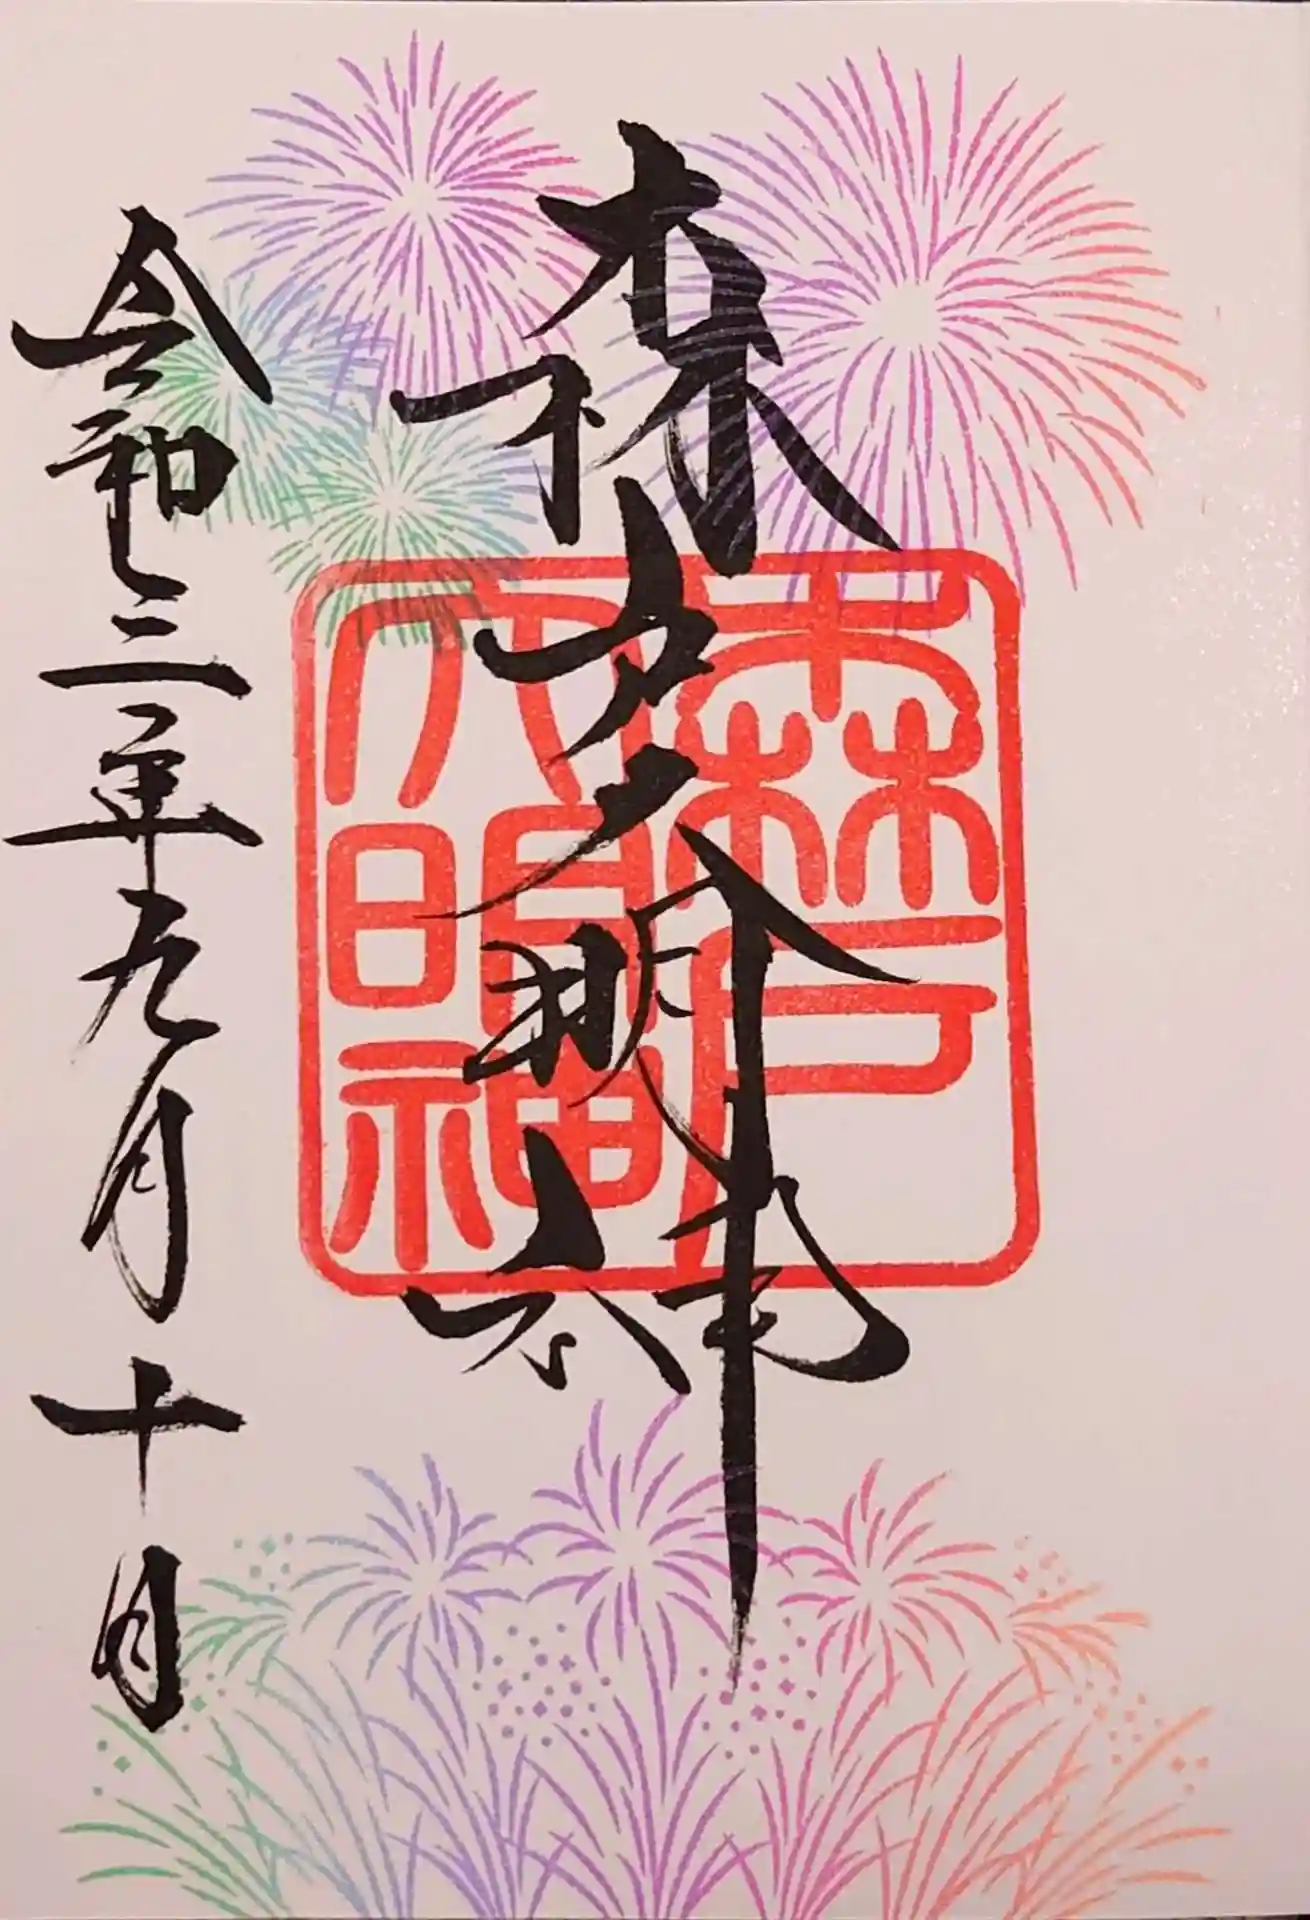 森戸大明神
令和三年九月十日
森戸
大明神